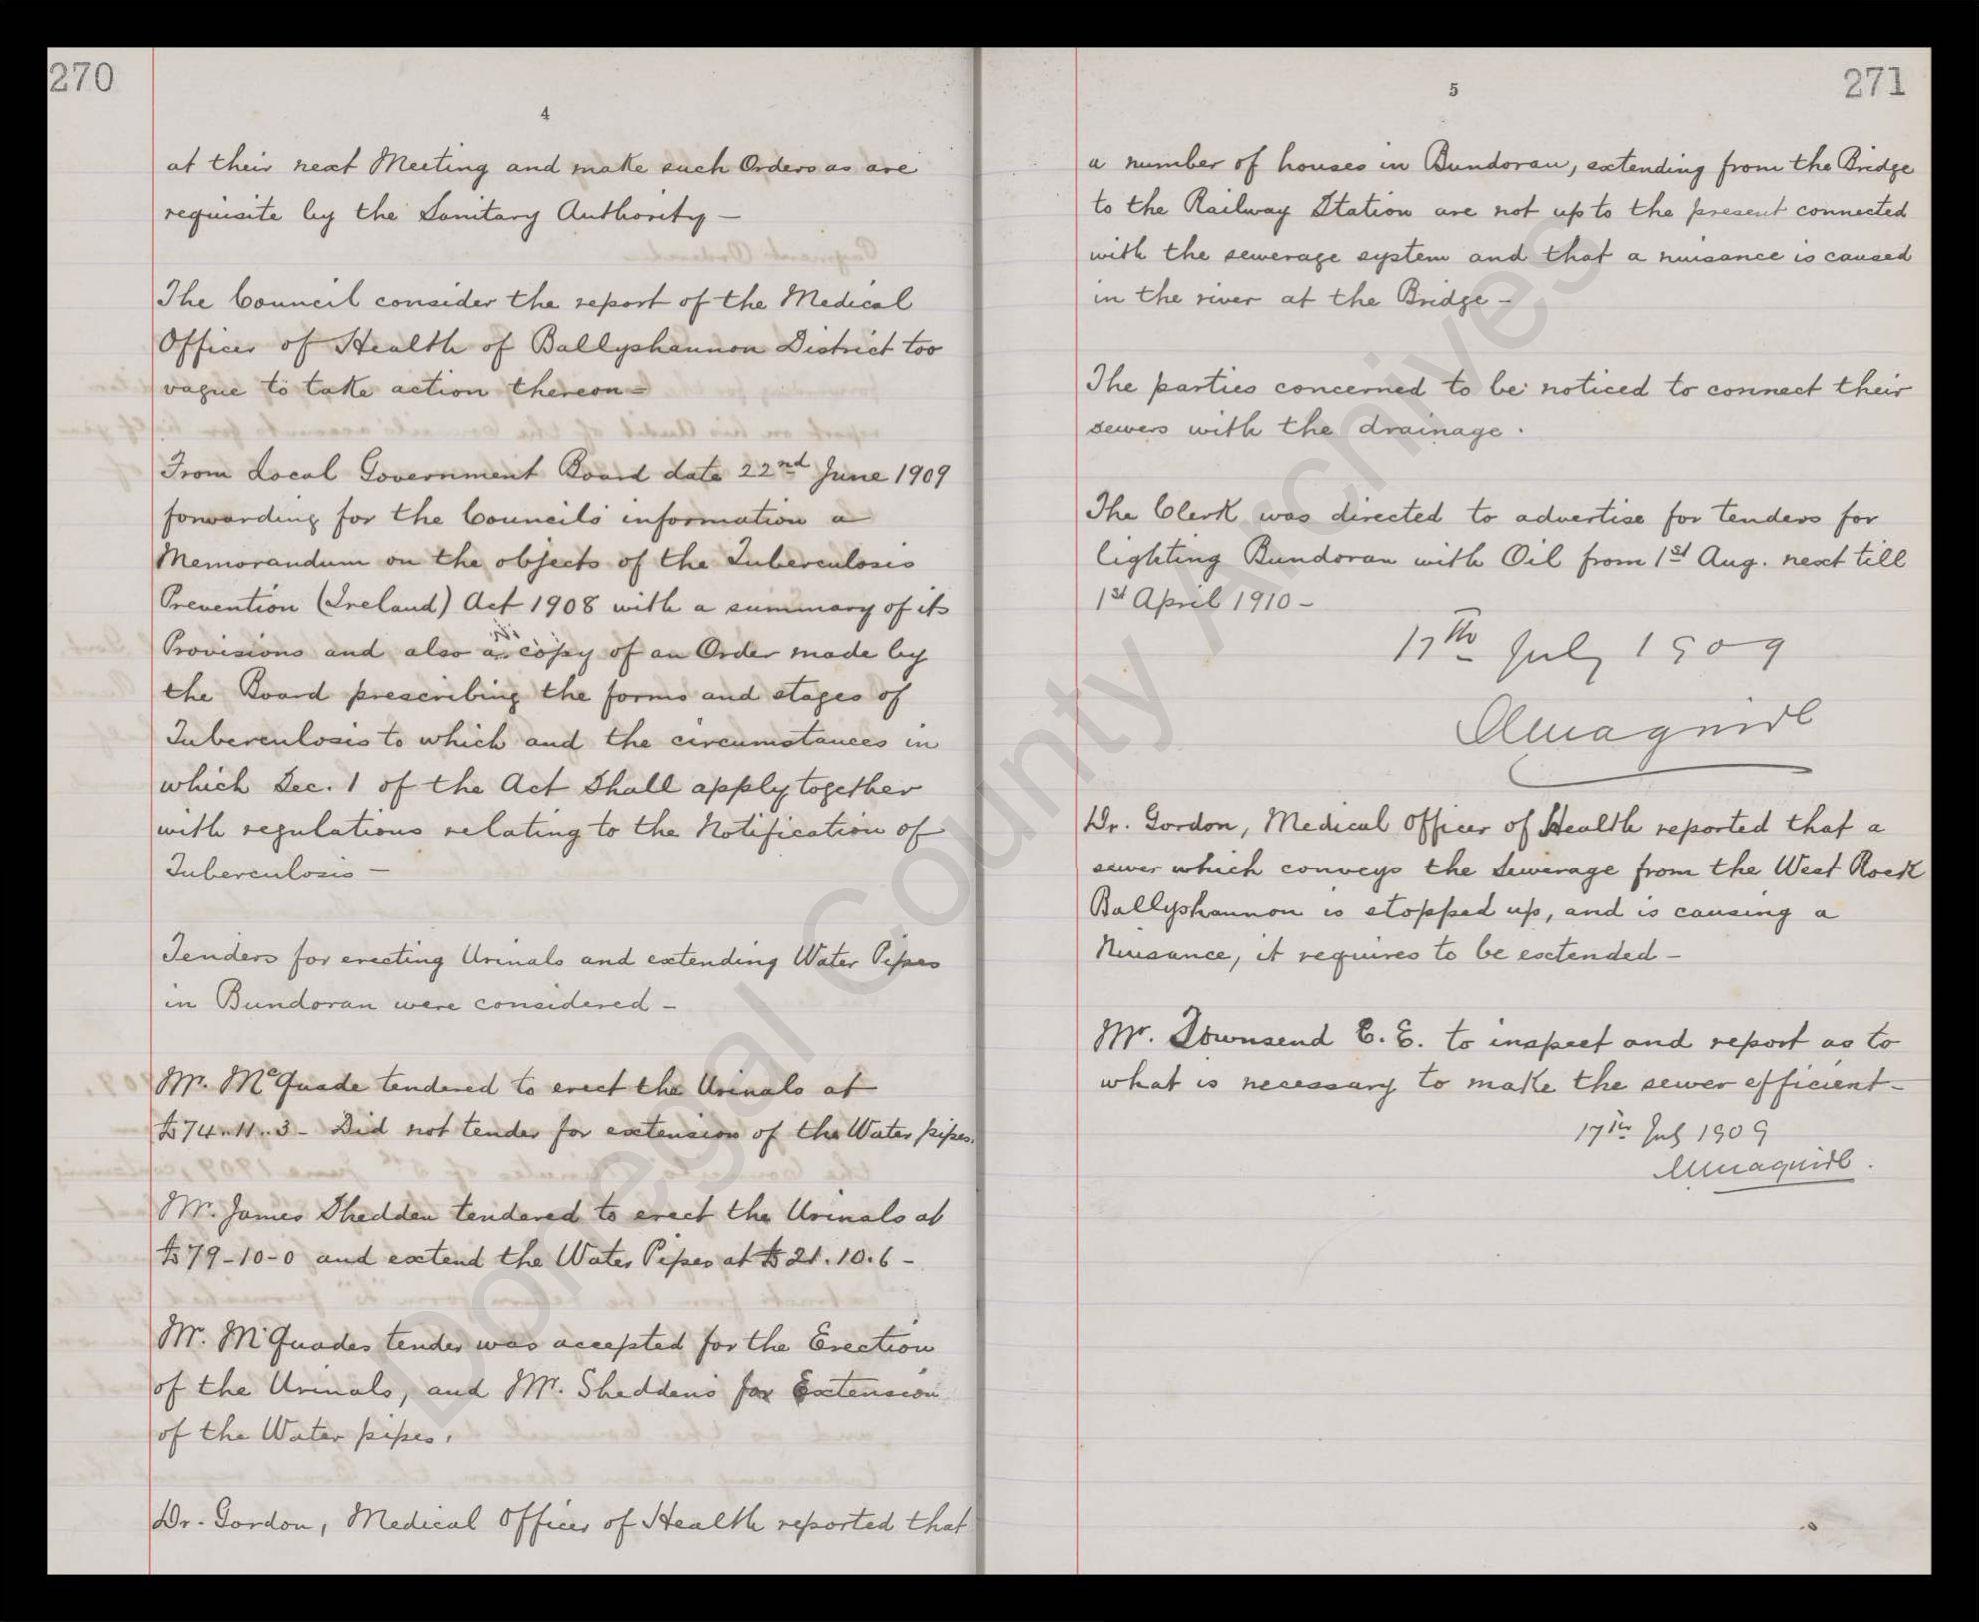 270
4
at their next Meeting and make such Orders as are
requisite by the Sanitary Authority –
The Council consider the report of the Medical
Officer of Health of Ballyshannon District too
vague to take action thereon =
From Local Government Board date 22nd June 1909
forwarding for the Councils' information a
Memorandum on the objects of the Tuberculosis
Prevention (Ireland) Act 1908 with a summary of its
Provisions and also a copy of an Order made by
the Board prescribing the forms and stages of
Tuberculosis to which and the circumstances in
which Sec. 1 of the Act Shall apply together
with regulations relating to the Notification of
Tuberculosis –
Tenders for erecting Urinals and extending Water Pipes
in Bundoran were considered –
Mr. McQuade tendered to erect the Urinals at
£74..11..3 – Did not tender for extension of the Water pipes.
Mr. James Shedden tendered to erect the Urinals at
£79-10-0 and extend the Water Pipes at £21.10.6 –
Mr. McQuades tender was accepted for the Erection
of the Urinals, and Mr. Shedden's for Extension
of the Water pipes.
Dr. Gordon, Medical Officer of Health reported that
271
5
a number of houses in Bundoran, extending from the Bridge
to the Railway Station are not up to the present connected
with the sewerage system and that a nuisance is caused
in the river at the Bridge –
The parties concerned to be noticed to connect their
sewers with the drainage.
The Clerk was directed to advertise for tenders for
lighting Bundoran with Oil from 1st Aug. next till
1st April 1910 –
17th July 1909
Dr. Gordon, Medical Officer of Health reported that a
sewer which conveys the Sewerage from the West Rock
Ballyshannon is stopped up, and is causing a
Nuisance, it requires to be extended –
Mr. Townsend C.E. to inspect and report as to
what is necessary to make the sewer efficient –
17th July 1909
Donegal County Archives